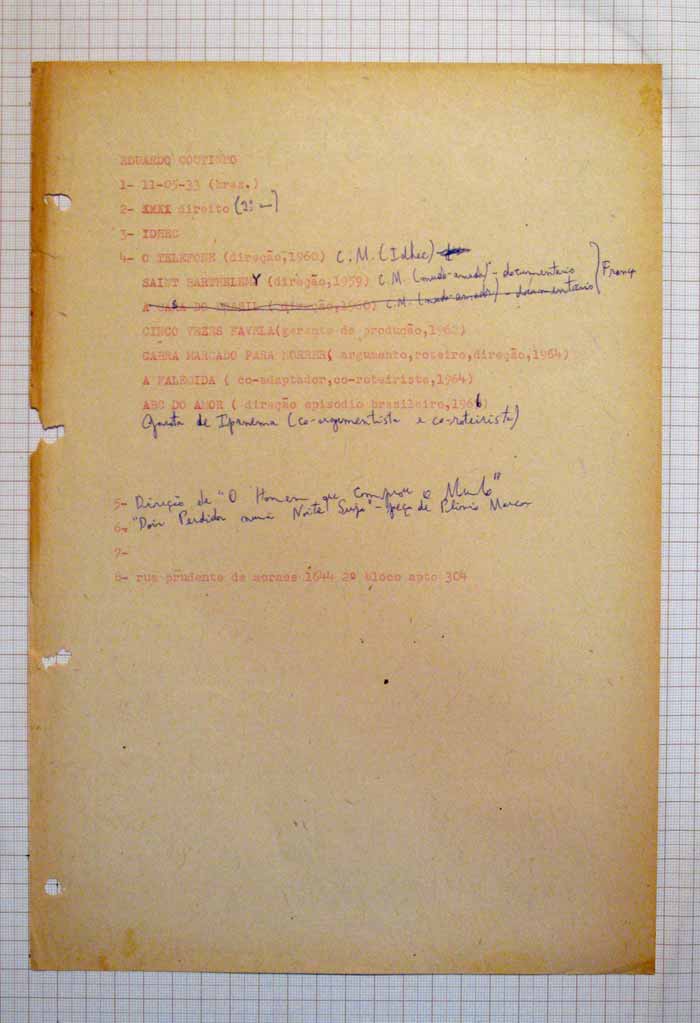 EDUARDO COUTINHO
1- 11-05-33 (bras.)
2- XMXX direito (2º —)
3- IDHEC
4- O TELEFONE (direção,1960) C.M. (Idhec)
SAINT BARTHELEMY (direção,1959) C.M. (mudo-amador) - documentario
A CASA DO BRASIL ( direção,1960) C.M. (mudo-amador) - documentário } França
CINCO VEZES FAVELA(gerente de produção,1962)
CABRA MARCADO PARA MORRER( argumento,roteiro,direção,1964)
A FALECIDA ( co-adaptador,co-roteirista,1964)
ABC DO AMOR ( direção episodio brasileiro,1966)
Garota de Ipanema (co-argumentista e co-roteirista)
5- Direção de "O Homem que comprou o Mundo"
6- "Dois Perdidos numa Noite Suja" - peça de Plínio Marcos
7-
8- rua prudente de moraes 1644 2º bloco apto 304